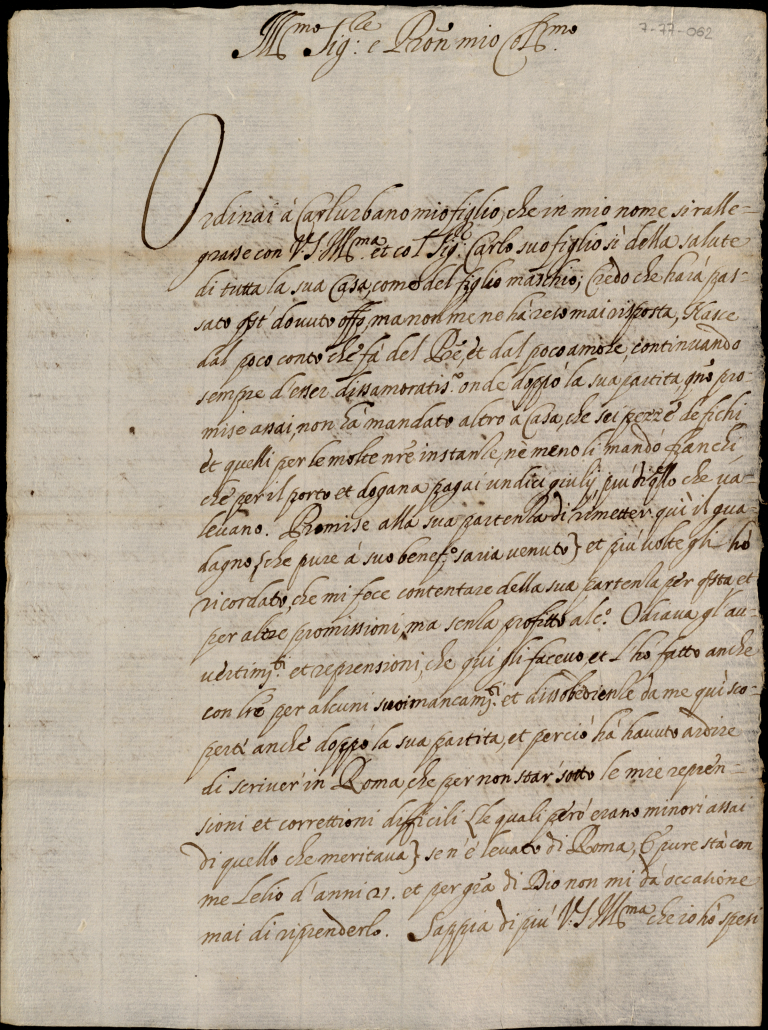 7-77-062
Ill.mo Sig.re e Pron mio Col.mo
Ordinai à Carlurbano mio figlio, che in mio nome si ralle=
grasse con V.S. Ill.ma et col Sig.re Carlo suo figlio sì della salute
di tutta la sua Casa, come del figlio maschio; Credo che harà pas-
sato qst' dovuto offo, ma non me ne hà reso mai risposta, Nasce
dal poco conto che fà del Pre, et dal poco amore, continuando
sempre d'esser dissamoratis.o onde doppò la sua partita qno pro-
mise assai, non hà mandato altro à Casa, che sei pezze de fichi
et quelli per le molte nre instanze, nè meno li mandò franchi
che per il porto et dogana pagai undici giulij, più di qllo che va-
levano. Promise alla sua partenza di rimetter quì il gua-
dagno {che pure à suo benef.o saria venuto} et più volte gli hò
ricordato, che mi fece contentare della sua partenza per qsta et
per altre promissioni, ma senza profitto alc.o Odiava gl'au-
vertim.ti et reprensioni, che quì gli facevo, et l'ho fatto anche
con lre per alcuni suoi mancam.ti et dissobedienze da me quì sco-
perte anche doppo la sua partita, et perciò hà havuto ardire
di scriver in Roma, che per non star sotto le mie repren-
sioni et correttioni difficili {le quali però erano minori assai
di quello che meritava} se n'è levato di Roma, E pure stà con
me Lelio d'anni 21. et per gra di Dio non mi dà occasione
mai di riprenderlo. Sappia di più V.S. Ill.ma che io hò spesi